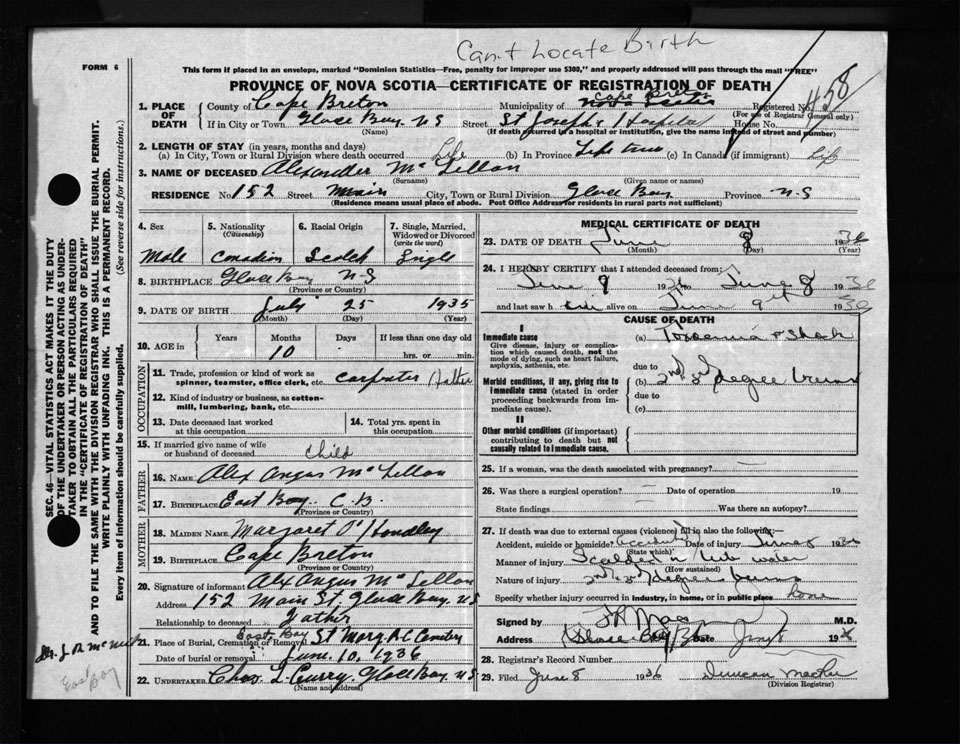 Can't Locate Birth
FORM 6
This form if placed in an envelope, marked "Dominion Statistics—Free, penalty for improper use $300," and properly addressed will pass through the mail "FREE"
PROVINCE OF NOVA SCOTIA—CERTIFICATE OF REGISTRATION OF DEATH
458
1. PLACE OF DEATH
County of Cape Breton Municipality of Cape Breton Nova Scotia Registered No.
(For use of Registrar General only)
If in City or Town Glace Bay, N S Street St Joseph's Hospital House No.
(Name) (If death occurred in a hospital or institution, give the name instead of street and number)
2. LENGTH OF STAY (in years, months and days)
(a) In City, Town or Rural Division where death occurred Life (b) In Province Life time (c) In Canada (if immigrant) Life
3. NAME OF DECEASED Alexander McLellan
(Surname) (Given name or names)
RESIDENCE No 152 Street Main City, Town or Rural Division Glace Bay Province N-S
(Residence means usual place of abode. Post Office Address for residents in rural parts not sufficient)
4. Sex 5. Nationality (Citizenship) 6. Racial Origin 7. Single, Married, Widowed or Divorced (write the word)
Male Canadian Scotch Single
8. BIRTHPLACE Glace Bay N-S
(Province or Country)
9. DATE OF BIRTH July 25 1935
(Month) (Day) (Year)
10. AGE in Years Months Days If less than one day old
10 hrs. or min.
OCCUPATION
11. Trade, profession or kind of work as spinner, teamster, office clerk, etc. carpenter Father
12. Kind of industry or business, as cotton-mill, lumbering, bank, etc.
13. Date deceased last worked at this occupation
14. Total yrs. spent in this occupation
15. If married give name of wife or husband of deceased Child
FATHER
16. NAME Alex Angus McLellan
17. BIRTHPLACE East Bay C.B.
(Province or Country)
MOTHER
18. MAIDEN NAME Margaret O'Handley
19. BIRTHPLACE Cape Breton
(Province or Country)
20. Signature of informant Alex Angus McLellan
Address 152 Main St, Glace Bay, NS
Relationship to deceased Father
21. Place of Burial, Cremation or Removal East Bay St Mary R.C Cemetery
Date of burial or removal June 10, 1936
22. UNDERTAKER Chas. L Curry, Glace Bay, NS
(Name and address)
MEDICAL CERTIFICATE OF DEATH
23. DATE OF DEATH June 8 1936
(Month) (Day) (Year)
24. I HEREBY CERTIFY that I attended deceased from:
June 9 1936 June 8 1936
and last saw h alive on June 9th 1936
CAUSE OF DEATH
I
Immediate cause
Give disease, injury or complication which caused death, not the mode of dying, such as heart failure, asphyxia, asthenia, etc.
(a) Toxaemia & Shock
due to
Morbid conditions, if any, giving rise to immediate cause (stated in order proceeding backwards from immediate cause).
(b) 2nd 3rd degree burns
due to
(c)
II
Other morbid conditions (if important) contributing to death but not causally related to immediate cause.
25. If a woman, was the death associated with pregnancy? —
26. Was there a surgical operation? — Date of operation 19
State findings Was there an autopsy?
27. If death was due to external causes (violence) fill in also the following:—
Accident, suicide or homicide? Accident Date of injury June 1936
(State which)
Manner of injury Scalded with water
(How sustained)
Nature of injury 2nd 3rd degree burns
Specify whether injury occurred in industry, in home, or in public place home
Signed by M.D.
Address Glace Bay Date June 8 1936
28. Registrar's Record Number
29. Filed June 8 1936 Duncan
(Division Registrar)
SEC. 46—VITAL STATISTICS ACT MAKES IT THE DUTY
OF THE UNDERTAKER OR PERSON ACTING AS UNDER-
TAKER TO OBTAIN ALL THE PARTICULARS REQUIRED
IN THE "CERTIFICATE OF REGISTRATION OF DEATH"
AND TO FILE THE SAME WITH THE DIVISION REGISTRAR WHO SHALL ISSUE THE BURIAL PERMIT.
WRITE PLAINLY WITH UNFADING INK. THIS IS A PERMANENT RECORD.
Every item of information should be carefully supplied. (See reverse side for instructions.)
East Bay